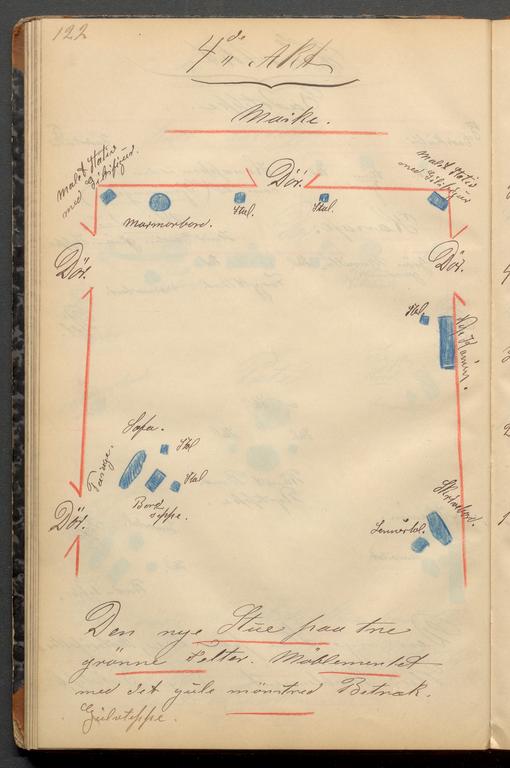 122
4de Akt
Maske.
Malet Stativ
med Gibsfigur.
Dör.
Malet Stativ
med Gibsfigur
Marmorbord.
Stol.
Stol.
Dör.
Dör.
Stol.
Kamin.
Sofa.
Stol
Stol
Bord
teppe.
Dör.
Skrivebord.
Lænestol.
Den nye Stue paa tre
grønne Felter. Möblementet
med det gule mönstred Betræk.
Gulvteppe.